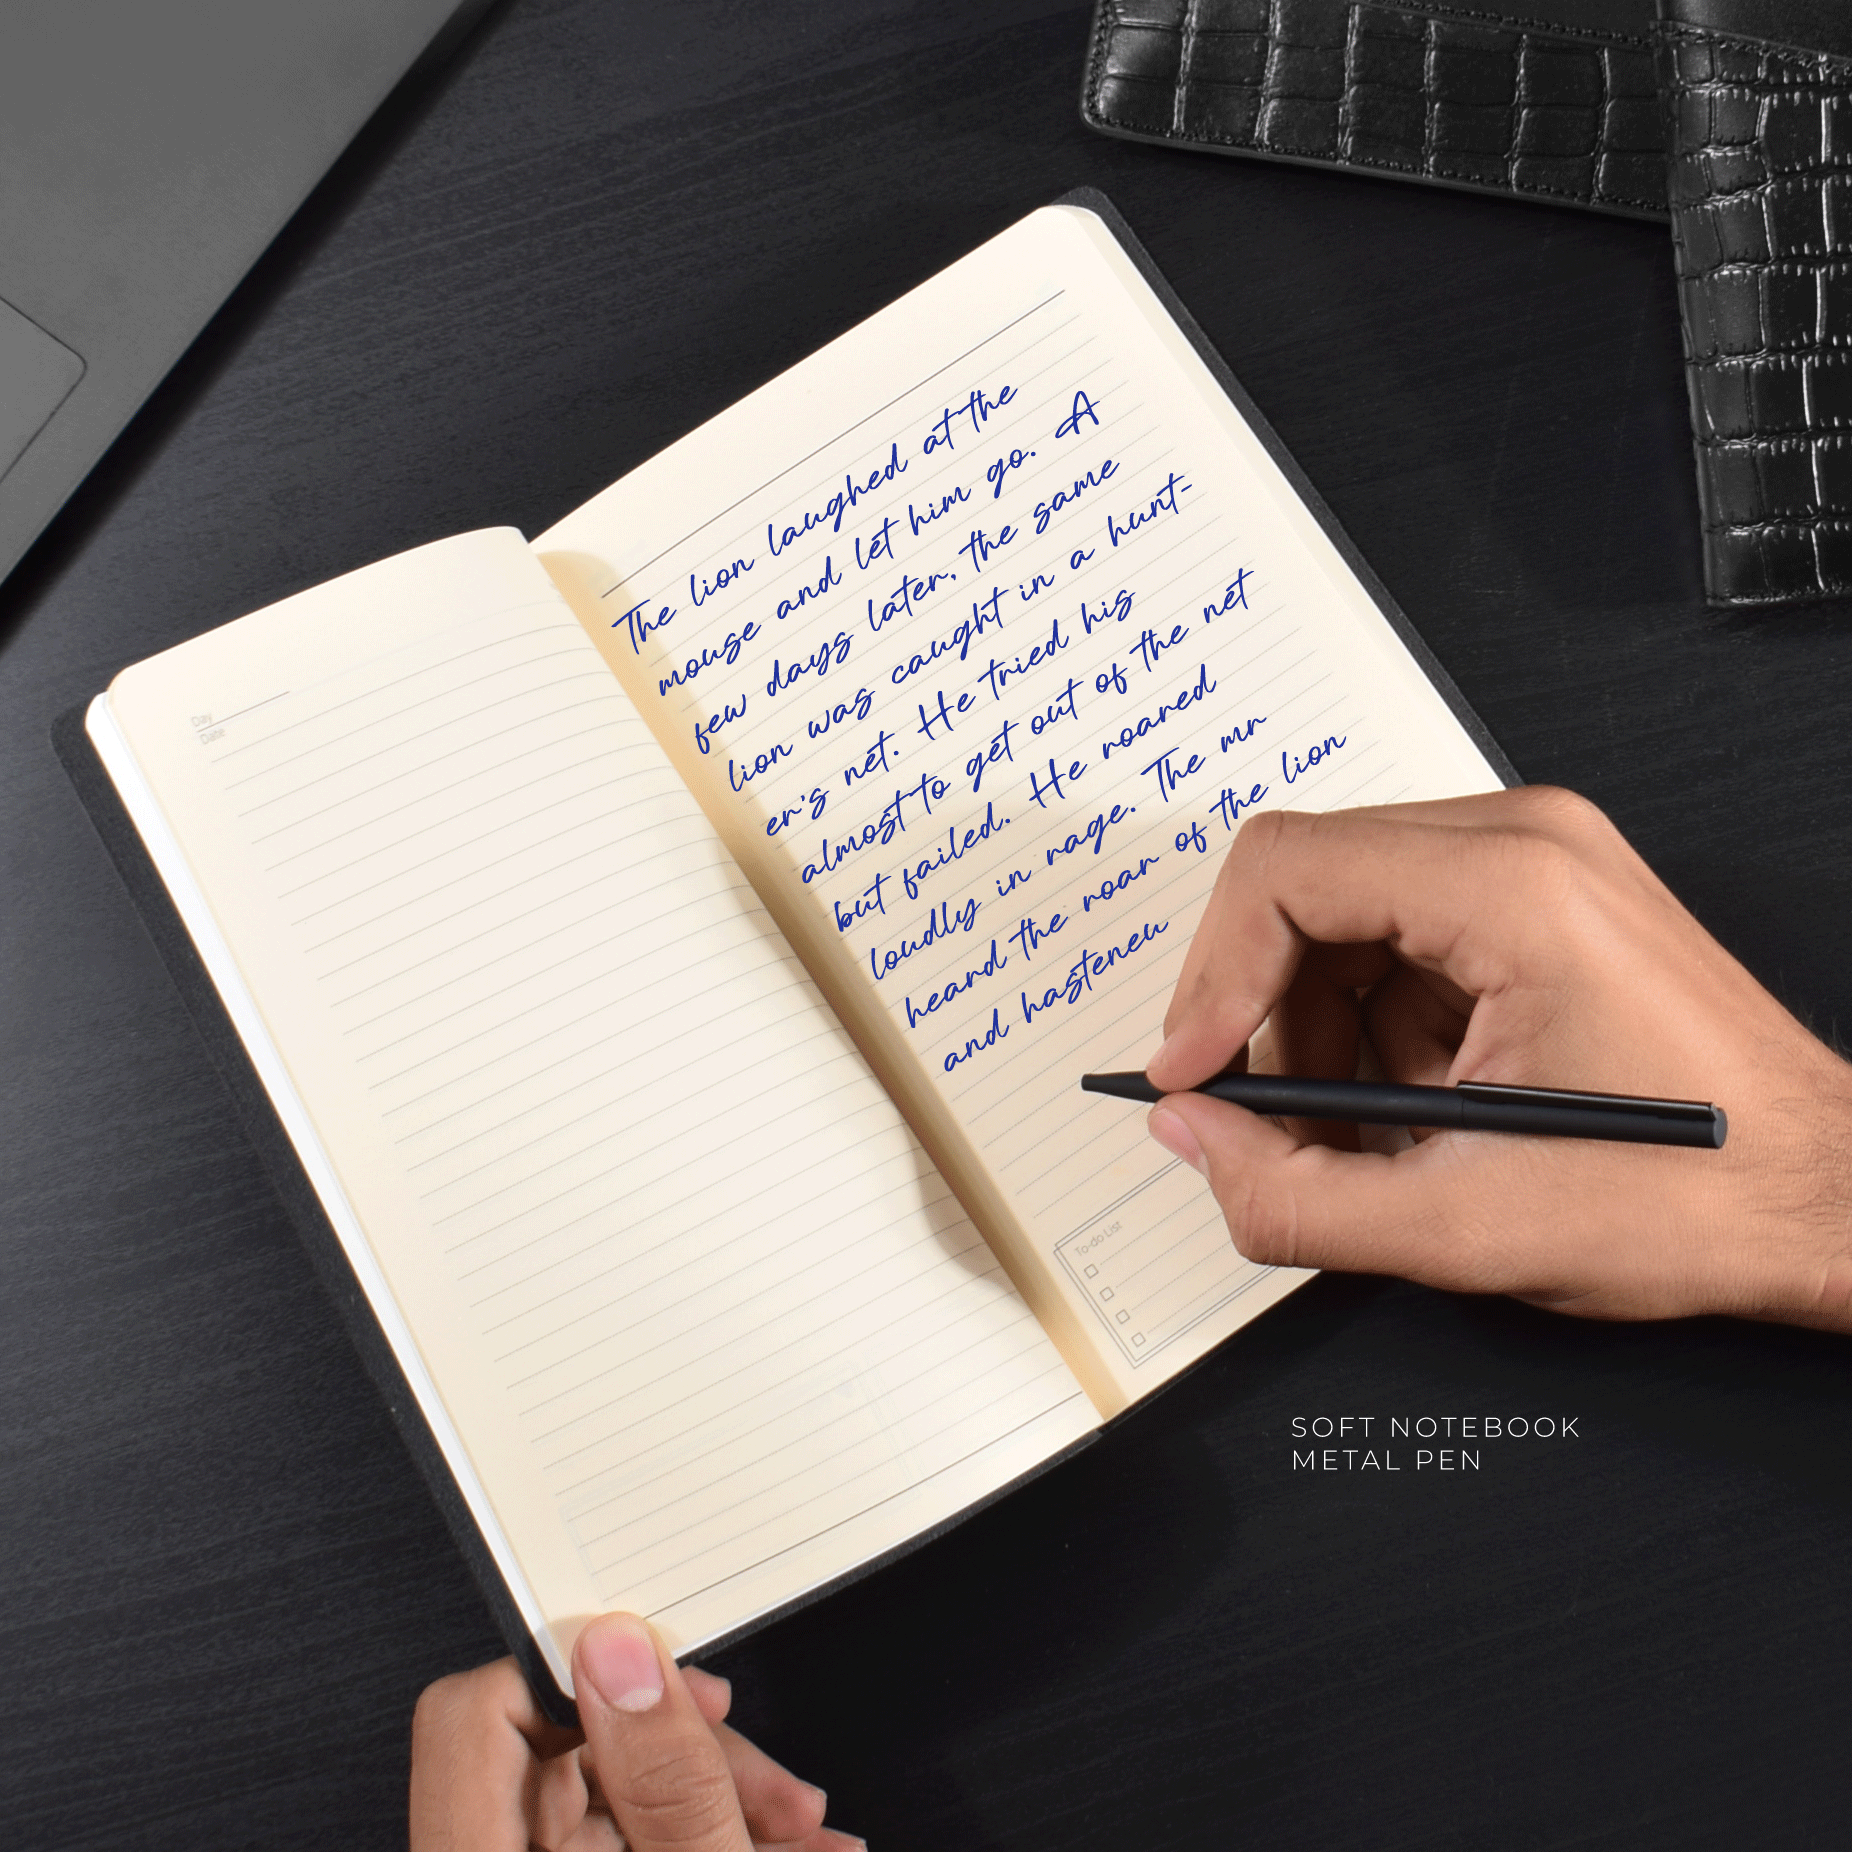 The lion laughed at the
mouse and let him go. A
few days later, the same
lion was caught in a hunt-
er's net. He tried his
almost to get out of the net
but failed. He roared
loudly in rage. The mr
heard the roar of the lion
and hasteneu
Day
Date
To-do List
SOFT NOTEBOOK
METAL PEN